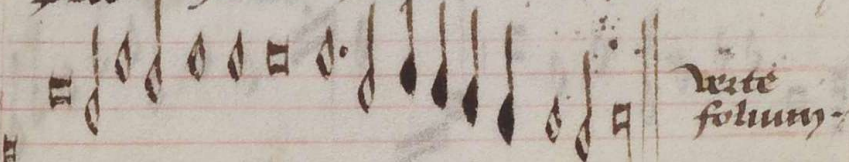 verte
folium.